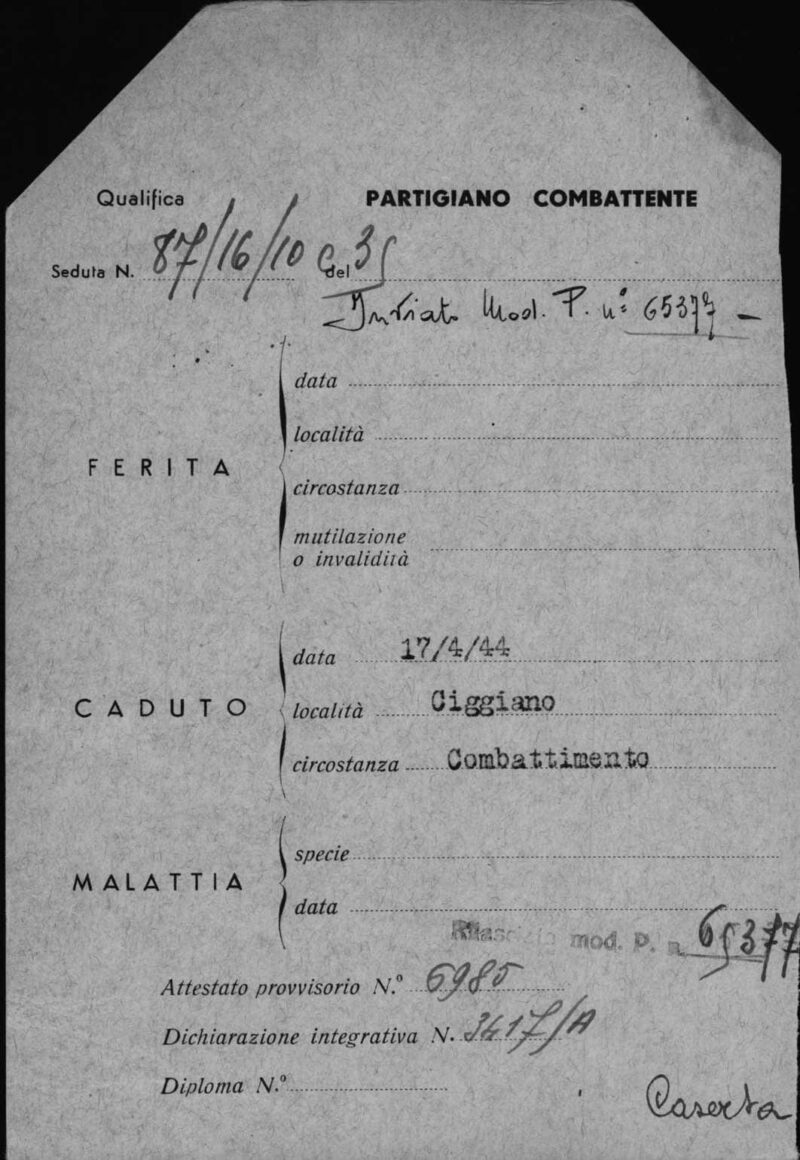 Qualifica PARTIGIANO COMBATTENTE
Seduta N. 87/16/10 del
Inviato Mod. P. n° 65377 -
FERITA
data
località
circostanza
mutilazione
o invalidità
CADUTO
data 17/4/44
località Ciggiano
circostanza Combattimento
MALATTIA
specie
data
mod. P. n. 65377
Attestato provvisorio N.° 6985
Dichiarazione integrativa N. 3417/A
Diploma N.°
Caserta